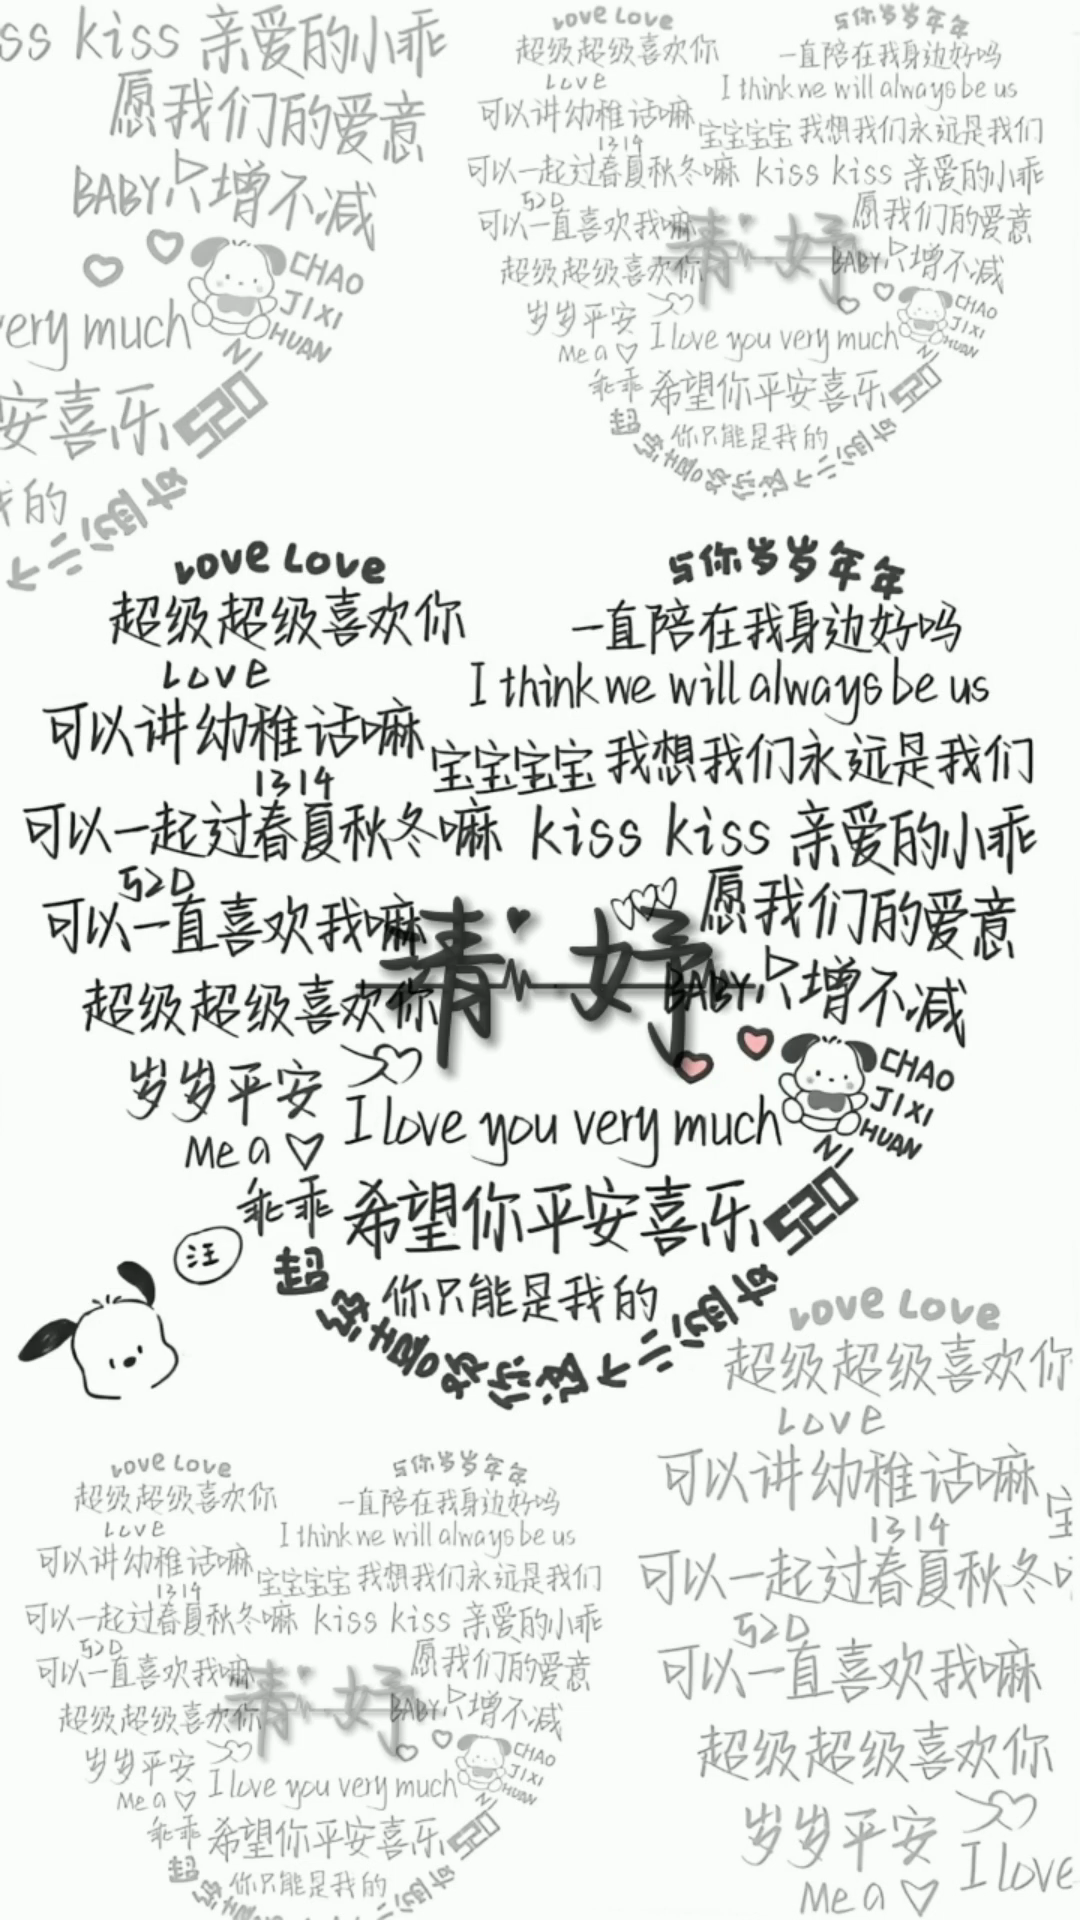 ss kiss 亲爱的小乖
愿我们的爱意
BABY只增不减
CHAO
JIXI
HUAN
NI
very much
安喜乐 520
我的
Love Love
与你岁岁年年
超级超级喜欢你
一直陪在我身边好吗
Love
I think we will always be us
可以讲幼稚话嘛
宝宝宝宝 我想我们永远是我们
1314
可以一起过春夏秋冬嘛 kiss kiss 亲爱的小乖
520
可以一直喜欢我嘛
愿我们的爱意
超级超级喜欢你
BABY只增不减
岁岁平安
CHAO
JIXI
HUAN
NI
Me a
I love you very much
乖乖 希望你平安喜乐 520
你只能是我的
Love Love
与你岁岁年年
超级超级喜欢你
一直陪在我身边好吗
Love
I think we will always be us
可以讲幼稚话嘛
宝宝宝宝 我想我们永远是我们
1314
可以一起过春夏秋冬嘛 kiss kiss 亲爱的小乖
520
可以一直喜欢我嘛
愿我们的爱意
妤
超级超级喜欢你
BABY只增不减
岁岁平安
CHAO
JIXI
HUAN
NI
Me a
I love you very much
乖乖 希望你平安喜乐 520
汪
你只能是我的
Love Love
超级超级喜欢你
Love
可以讲幼稚话嘛
1314
可以一起过春夏秋冬
520
可以一直喜欢我嘛
超级超级喜欢你
岁岁平安
I love
Me a
Love Love
与你岁岁年年
超级超级喜欢你
一直陪在我身边好吗
Love
I think we will always be us
可以讲幼稚话嘛
宝宝宝宝 我想我们永远是我们
1314
可以一起过春夏秋冬嘛 kiss kiss 亲爱的小乖
520
可以一直喜欢我嘛
愿我们的爱意
超级超级喜欢你
BABY只增不减
岁岁平安
CHAO
JIXI
HUAN
NI
Me a
I love you very much
乖乖 希望你平安喜乐 520
你只能是我的